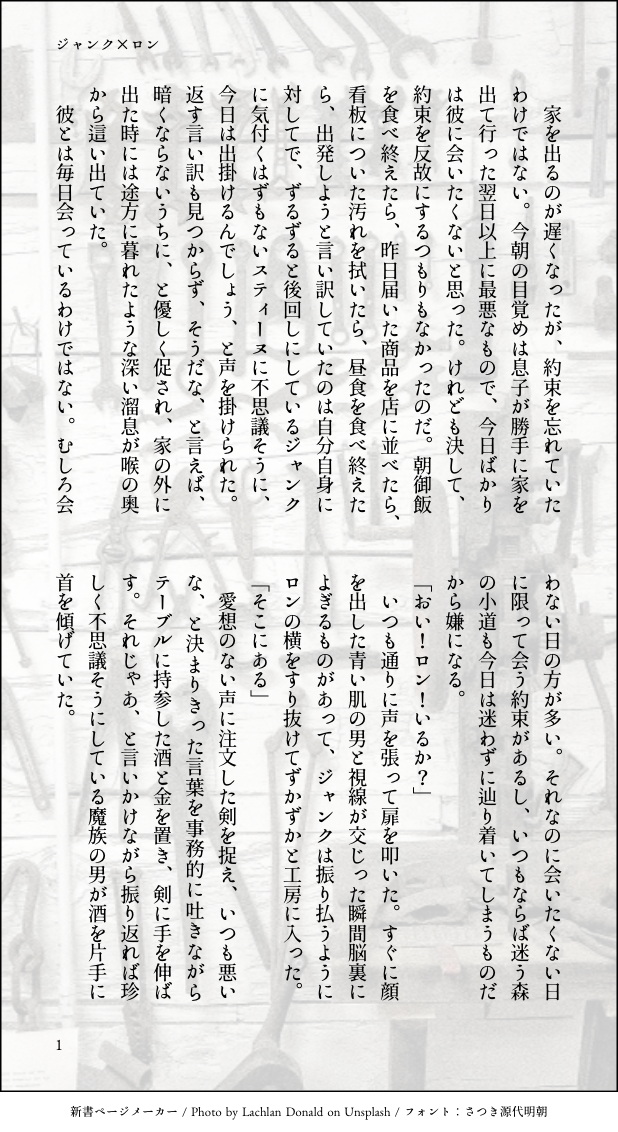 ジャンク×ロン
　家を出るのが遅くなったが、約束を忘れていた
わけではない。今朝の目覚めは息子が勝手に家を
出て行った翌日以上に最悪なもので、今日ばかり
は彼に会いたくないと思った。けれども決して、
約束を反故にするつもりもなかったのだ。朝御飯
を食べ終えたら、昨日届いた商品を店に並べたら、
看板についた汚れを拭いたら、昼食を食べ終えた
ら、出発しようと言い訳していたのは自分自身に
対してで、ずるずると後回しにしているジャンク
に気付くはずもないスティーヌに不思議そうに、
今日は出掛けるんでしょう、と声を掛けられた。
返す言い訳も見つからず、そうだな、と言えば、
暗くならないうちに、と優しく促され、家の外に
出た時には途方に暮れたような深い溜息が喉の奥
から這い出ていた。
　彼とは毎日会っているわけではない。むしろ会
わない日の方が多い。それなのに会いたくない日
に限って会う約束があるし、いつもならば迷う森
の小道も今日は迷わずに辿り着いてしまうものだ
から嫌になる。
「おい！ロン！いるか？」
　いつも通りに声を張って扉を叩いた。すぐに顔
を出した青い肌の男と視線が交じった瞬間脳裏に
よぎるものがあって、ジャンクは振り払うように
ロンの横をすり抜けてずかずかと工房に入った。
「そこにある」
　愛想のない声に注文した剣を捉え、いつも悪い
な、と決まりきった言葉を事務的に吐きながら
テーブルに持参した酒と金を置き、剣に手を伸ば
す。それじゃあ、と言いかけながら振り返れば珍
しく不思議そうにしている魔族の男が酒を片手に
首を傾げていた。
1
新書ページメーカー / Photo by Lachlan Donald on Unsplash / フォント：さつき源代明朝